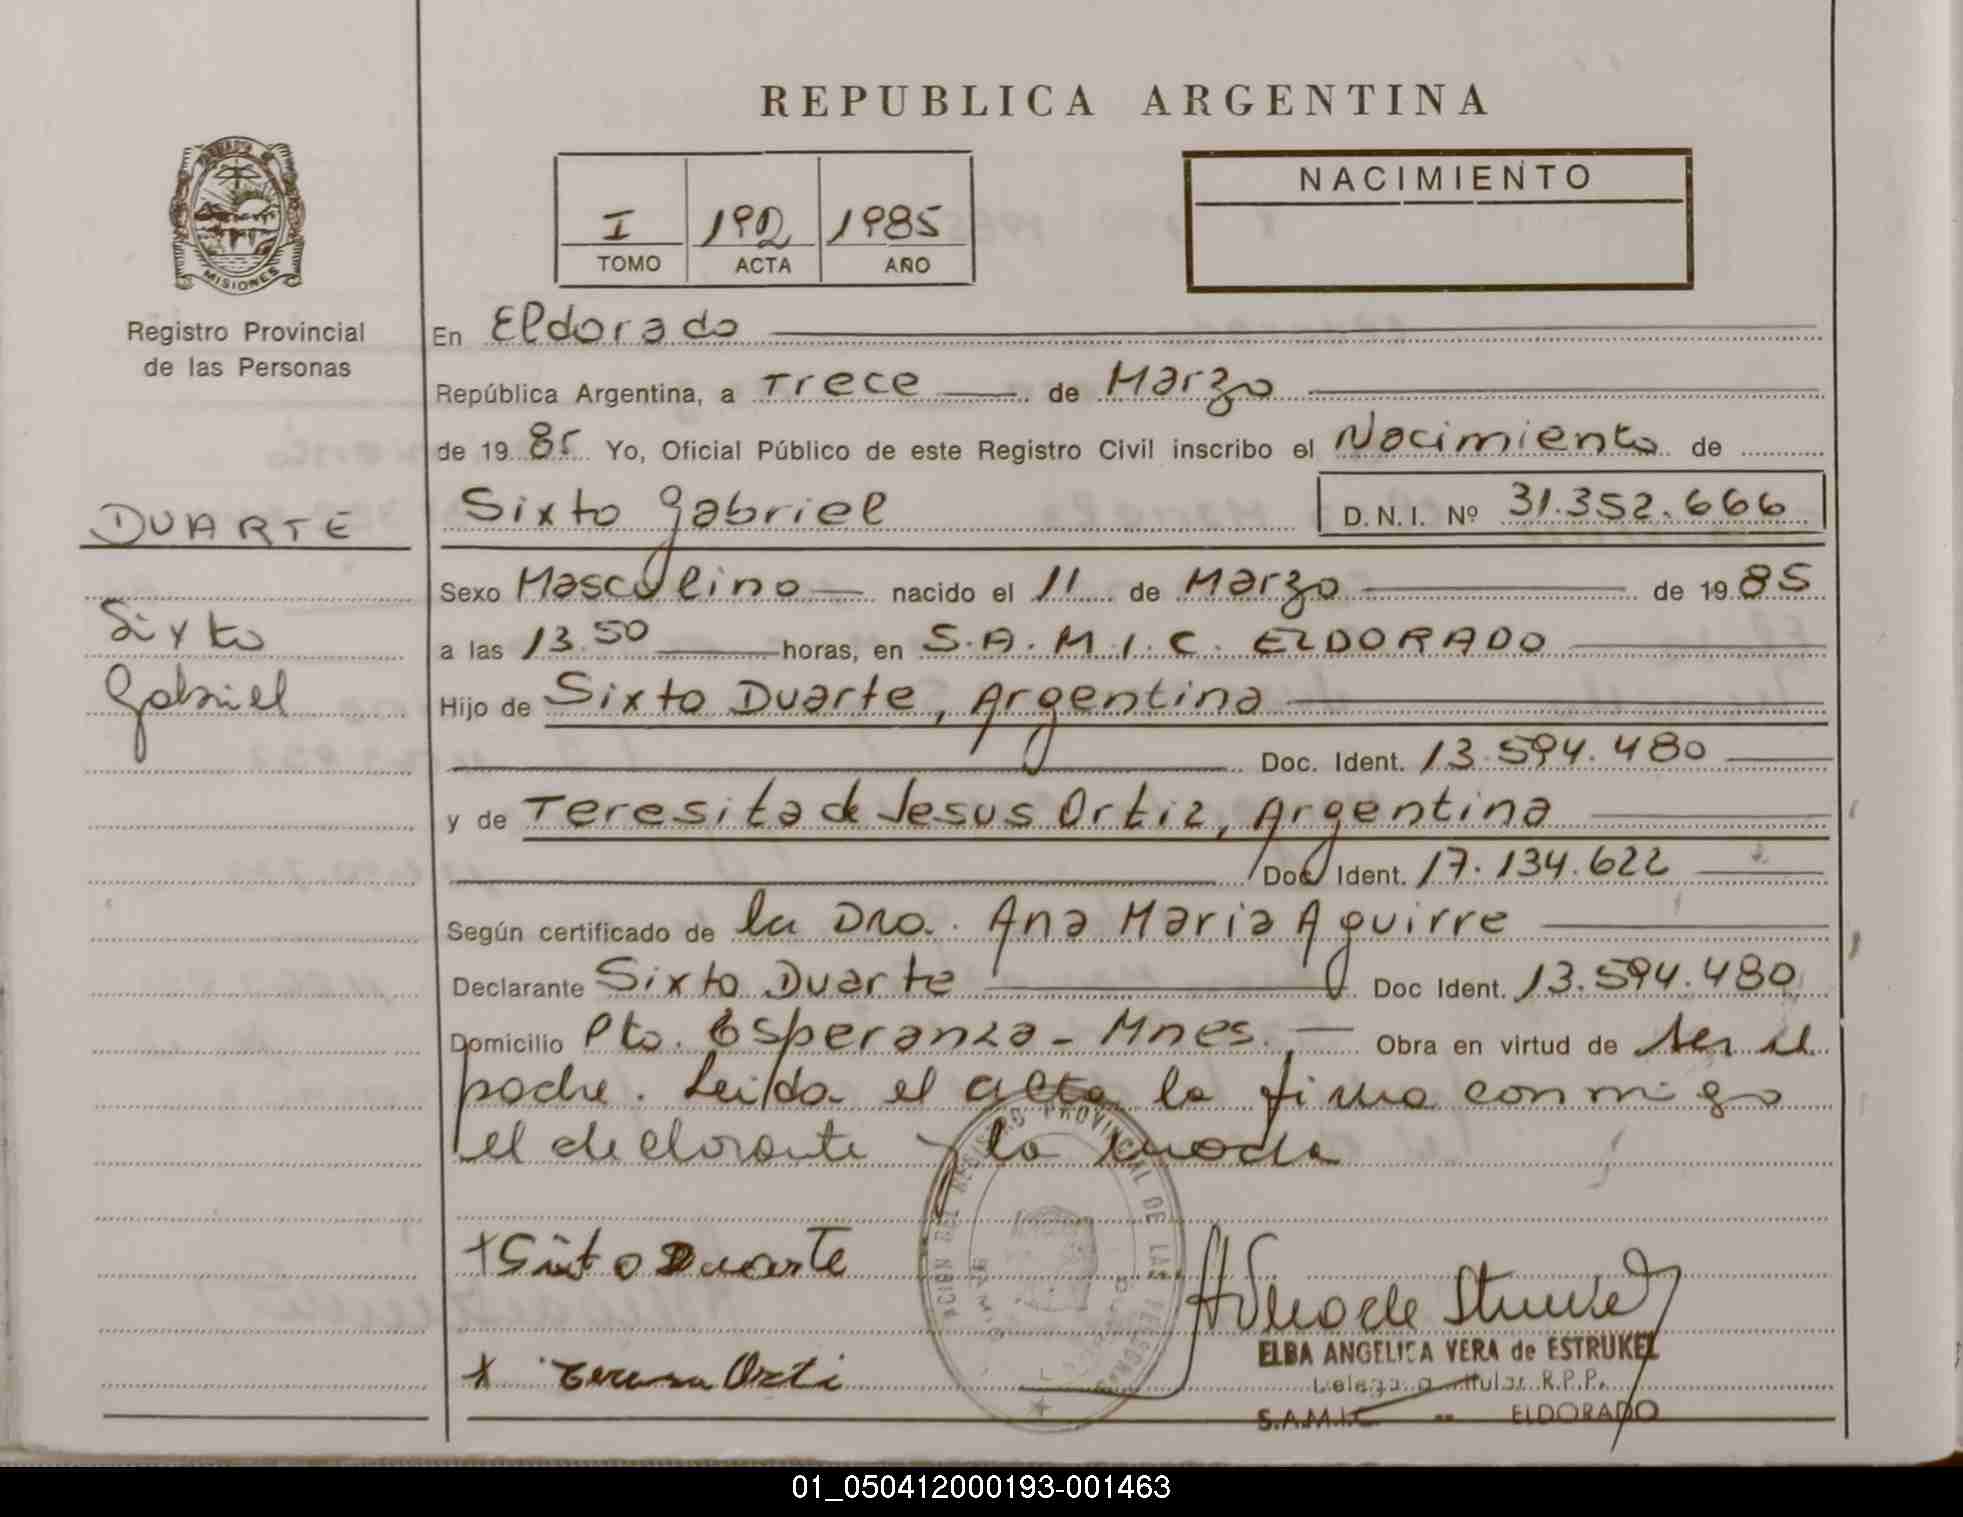 REPUBLICA ARGENTINA
MISIONES
Registro Provincial
de las Personas
I 192 1985
TOMO ACTA AÑO
NACIMIENTO
En Eldorado
República Argentina, a Trece de Marzo
de 1985 Yo, Oficial Público de este Registro Civil inscribo el Nacimiento de
DUARTE
Sixto Gabriel D.N.I. Nº 31.352.666
Sixto
Gabriel
Sexo Masculino nacido el 11 de Marzo de 1985
a las 13.50 horas, en S.A.M.I.C. ELDORADO
Hijo de Sixto Duarte, Argentina
Doc. Ident. 13.594.480
y de Teresita de Jesus Ortiz, Argentina
Doc Ident. 17.134.622
Según certificado de la Dra. Ana Maria Aguirre
Declarante Sixto Duarte Doc Ident. 13.594.480
Domicilio Pto. Esperanza - Mnes. Obra en virtud de ser el
padre. Leida el acta la firma conmigo
el declarante y la madre
REGISTRO PROVINCIAL DE LAS PERSONAS
x Sixto Duarte
x Teresa Orti
ELBA ANGELICA VERA de ESTRUKEL
Titular R.P.P.
S.A.M.I.C. -- ELDORADO
01_050412000193-001463